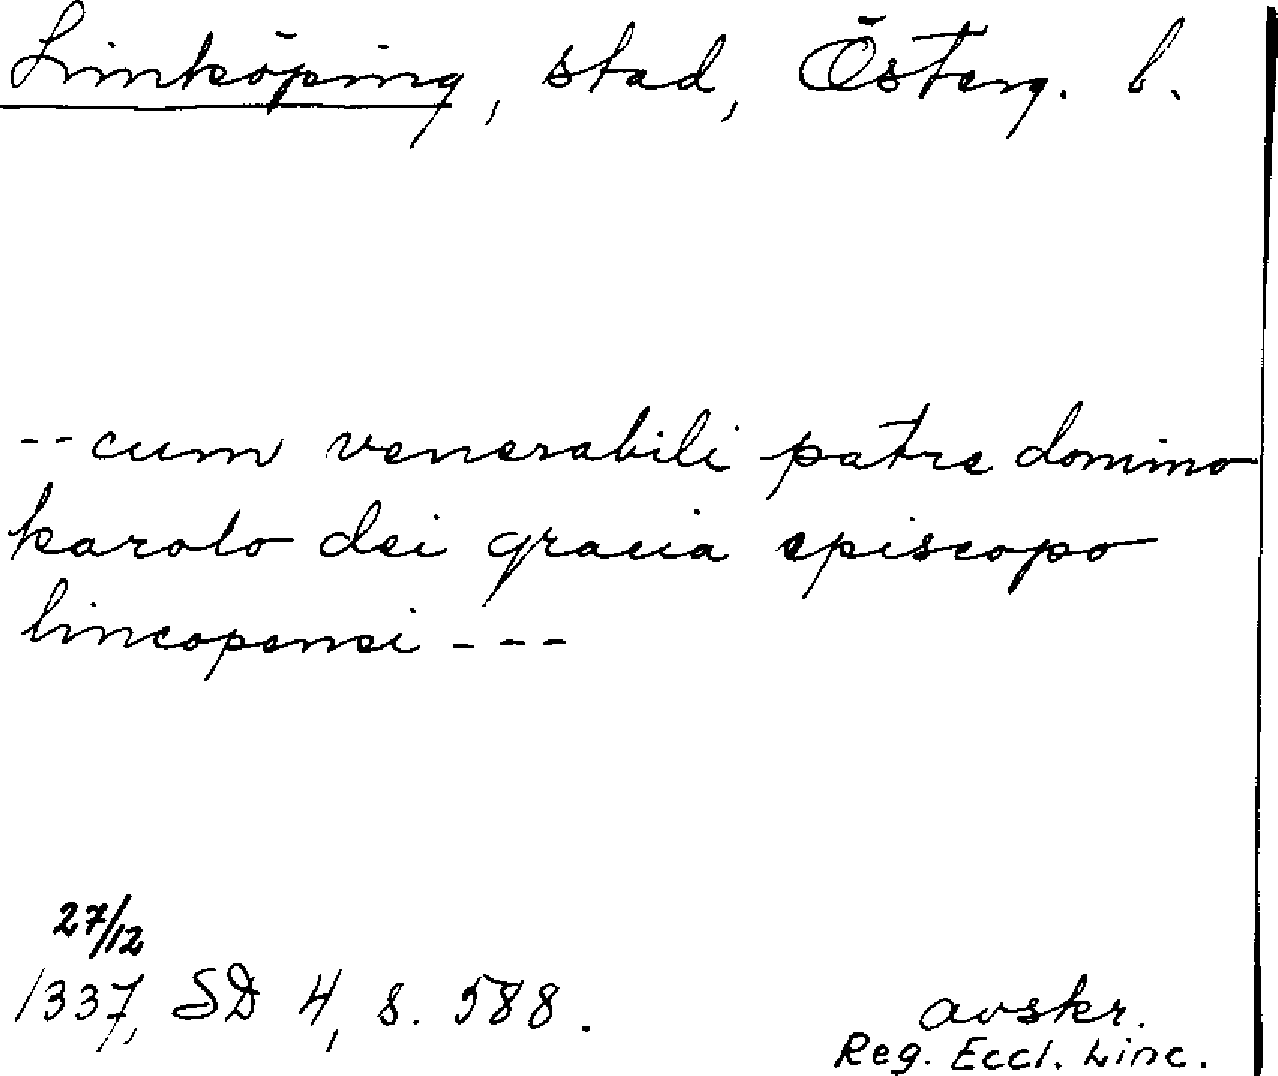 Linköping, stad, Österg. l.
-- cum venerabili patre domino
karolo dei gracia episcopo
lincopensi - - -
27/12
1337, SD 4, s. 588.
avskr.
Reg. Eccl. Linc.